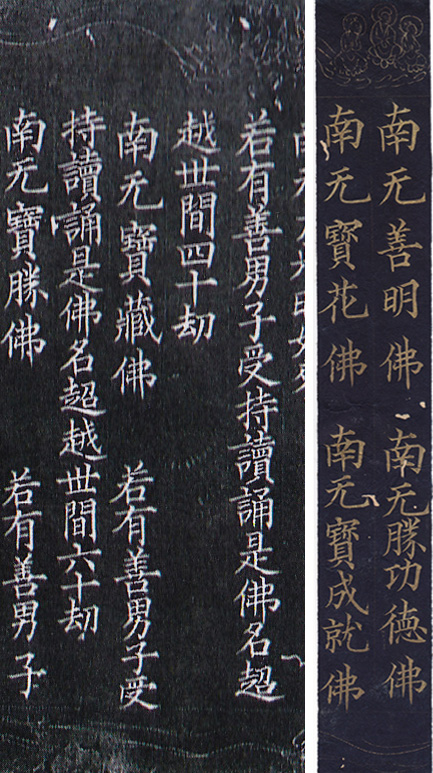 南无善明佛 南无勝功德佛
南无寶花佛 南无寶成就佛
若有善男子受持讀誦是佛名超
越世間四十劫
南无寶藏佛 若有善男子受
持讀誦是佛名超越世間六十劫
南无寶勝佛 若有善男子